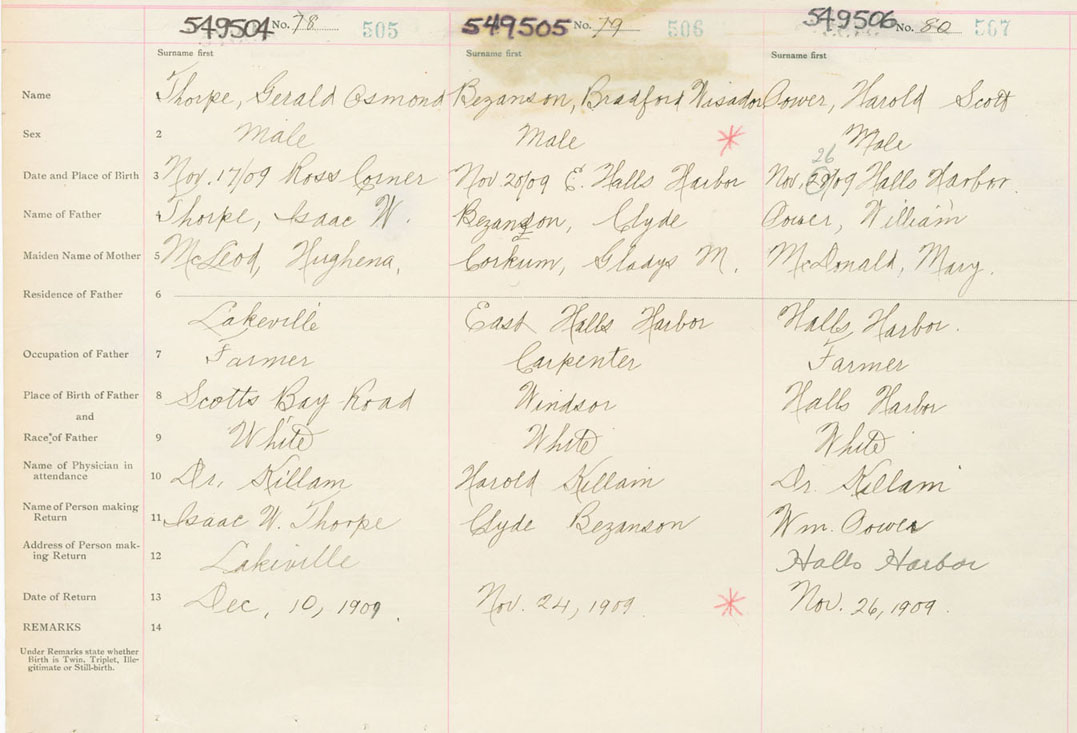 549504 No. 78 505 549505 No. 79 506 549506 No. 80 507
Surname first Surname first Surname first
Name Thorpe, Gerald Osmond Bezanson, Bradford Power, Harold Scott
Sex 2 Male Male * Male
26
Date and Place of Birth 3 Nov. 17/09 Ross Corner Nov 20/09 E. Halls Harbor Nov. 28/09 Halls Harbor.
Name of Father Thorpe, Isaac W. Bezanson, Clyde Power, William
Maiden Name of Mother 5 McLeod, Hughena, Corkum, Gladys M. McDonald, Mary.
Residence of Father 6
Lakeville East Halls Harbor Halls Harbor.
Occupation of Father 7 Farmer Carpenter Farmer
Place of Birth of Father 8 Scotts Bay Road Windsor Halls Harbor
and
Race of Father 9 White White White
Name of Physician in
attendance 10 Dr. Killam Harold Killam Dr. Killam
Name of Person making
Return 11 Isaac W. Thorpe Clyde Bezanson Wm. Power
Address of Person mak-
ing Return 12 Lakeville Halls Harbor
Date of Return 13 Dec, 10, 1909. Nov. 24, 1909 * Nov. 26, 1909.
REMARKS 14
Under Remarks state whether
Birth is Twin, Triplet, Ille-
gitimate or Still-birth.